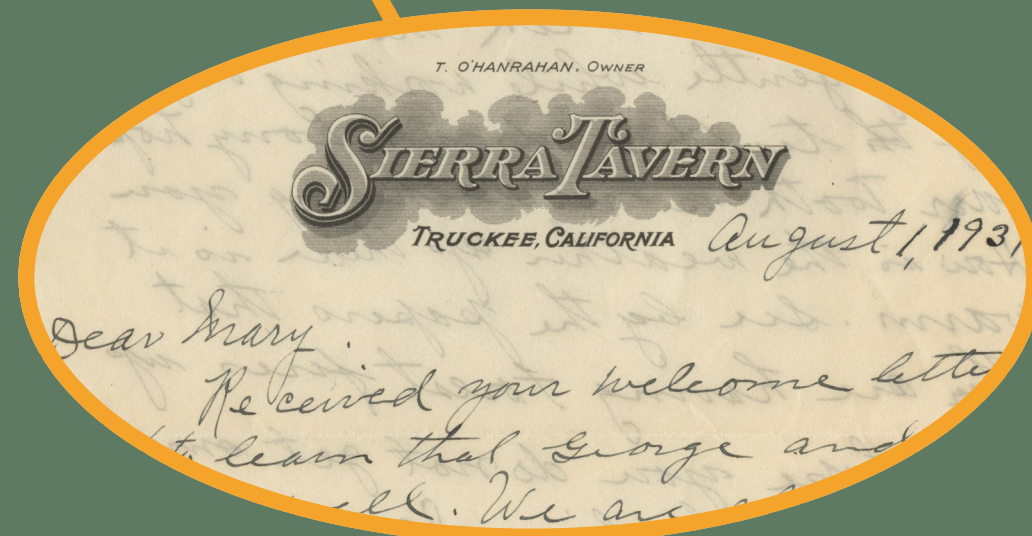 T. O'HANRAHAN, OWNER
SIERRA TAVERN
TRUCKEE, CALIFORNIA
August 1, 193
Dear Mary.
Received your welcome lette
to learn that George and
ell. We are